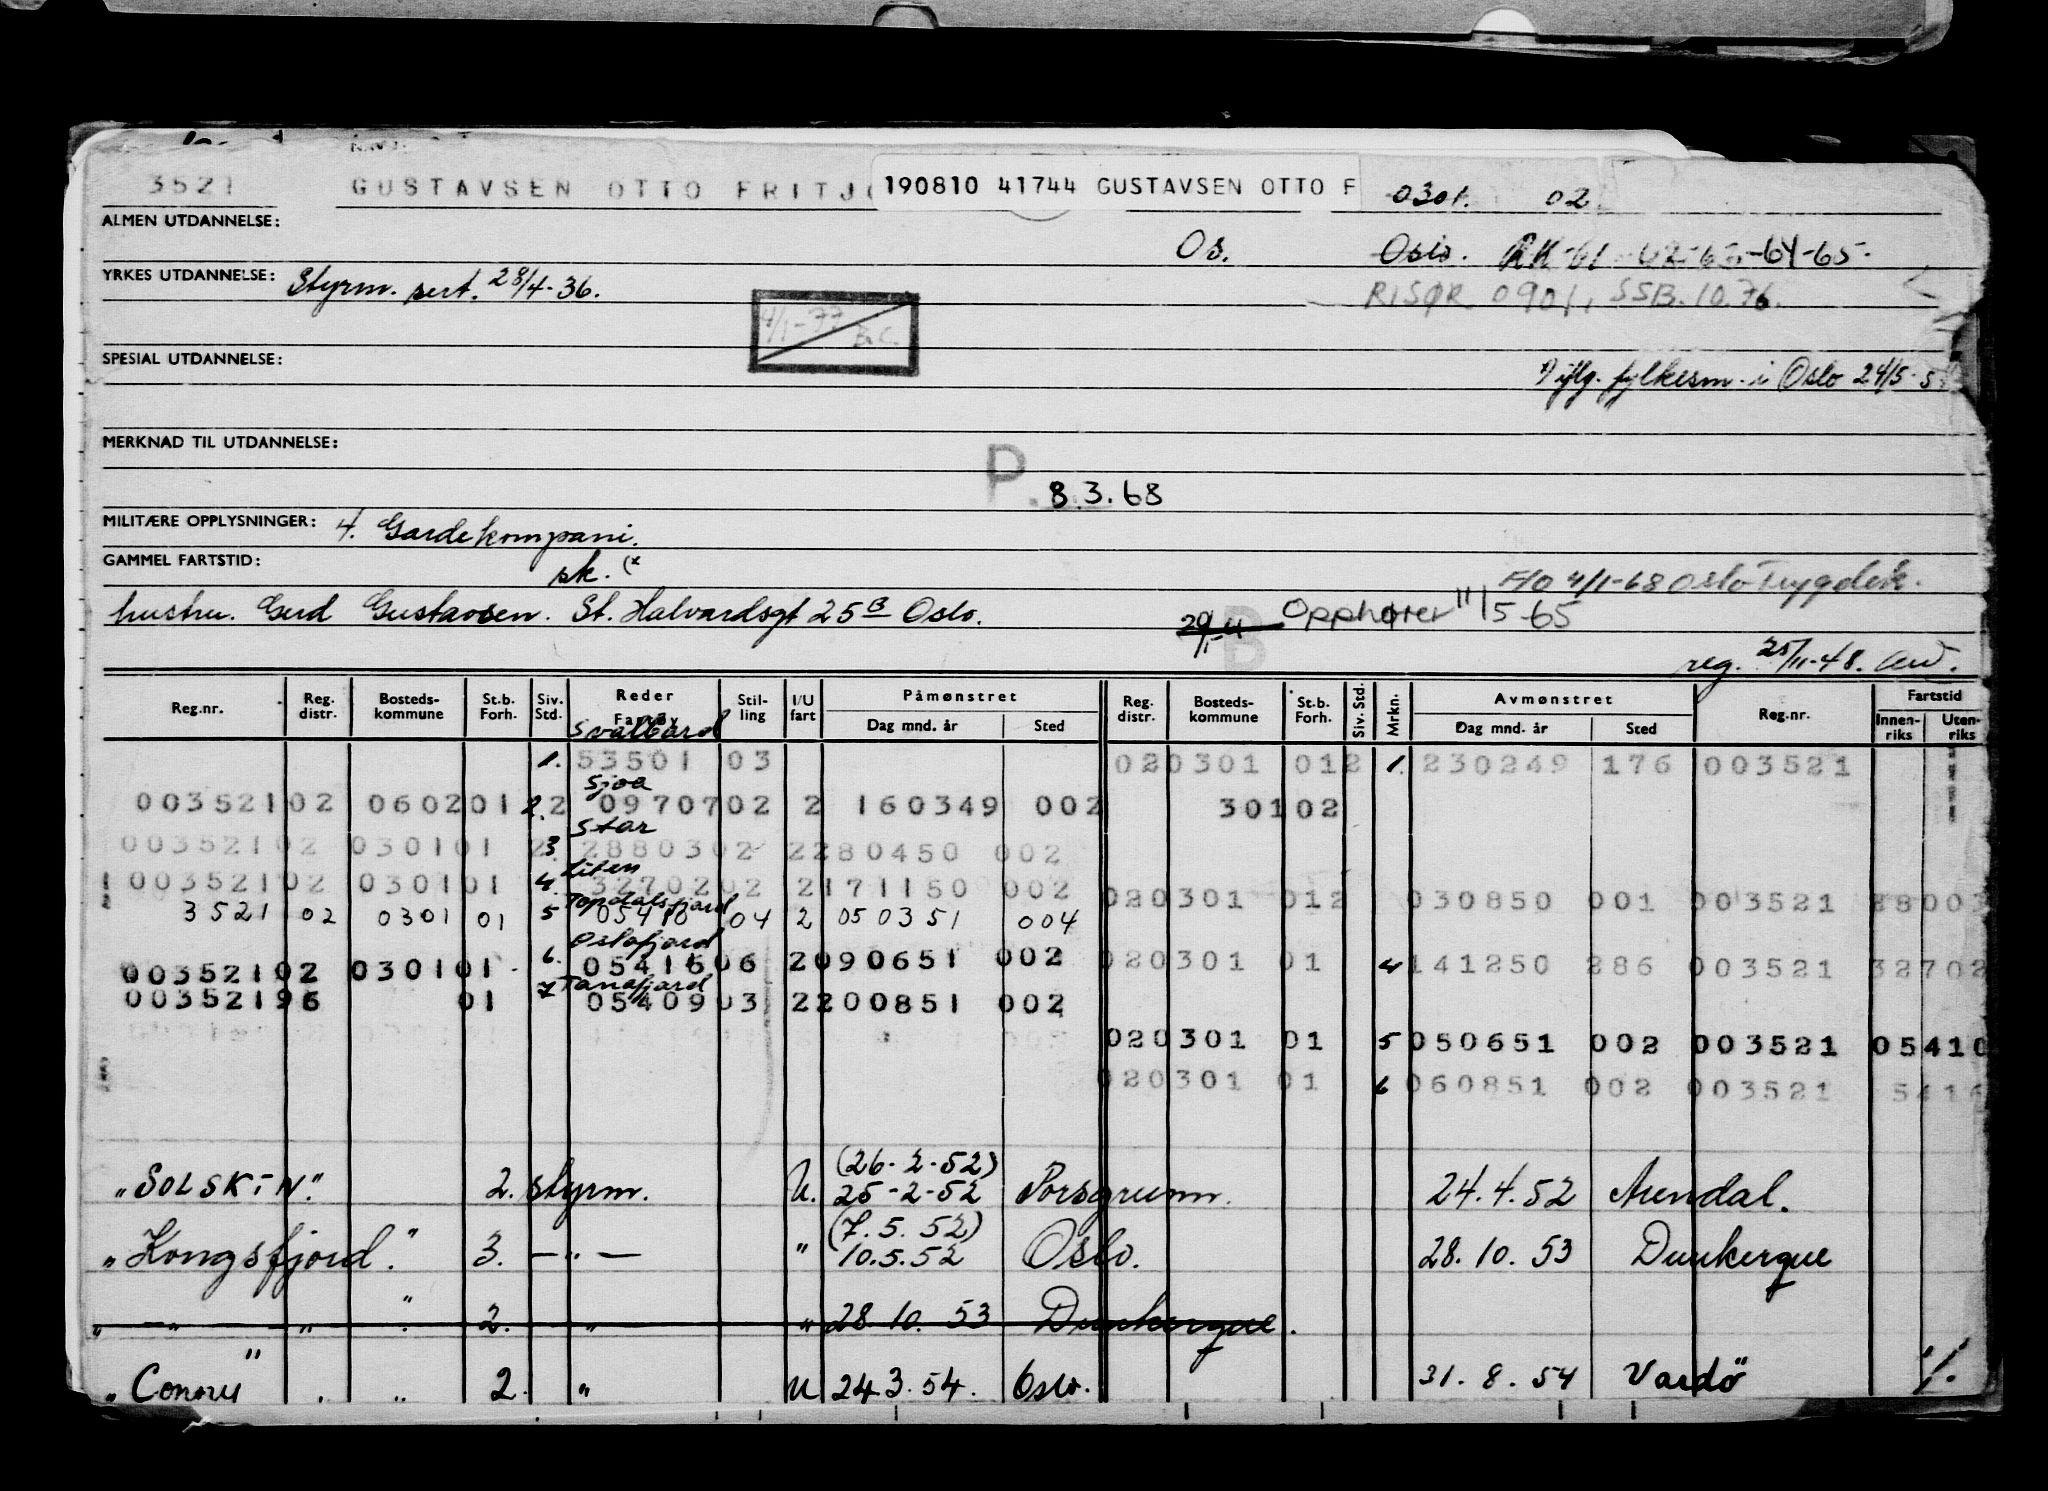 3521 GUSTAVSEN OTTO FRITJO 190810 41744 GUSTAVSEN OTTO F 0301. 02
ALMEN UTDANNELSE:
Os. Oslo. RK-61-62-63-64-65-
YRKES UTDANNELSE: Styrm. sert. 28/4-36.
RISØR 0901, SSB.10.76.
4/1-77 B.C.
SPESIAL UTDANNELSE:
iflg. fylkesm. i Oslo 24/5-5
MERKNAD TIL UTDANNELSE:
P. 8.3.68
MILITÆRE OPPLYSNINGER: 4. Gardekompani.
GAMMEL FARTSTID: sk. (x
F/O 4/1-68 Oslo Trygdek.
hustru. Gerd Gustavsen. St. Halvardsgt 25B Oslo.
B Opphører 11/5-65
reg. 25/11-48.
Reg.nr. Reg. distr. Bosteds-kommune St.b. Forh. Siv. Std. Reder Fartøy Stil-ling I/U fart Påmønstret Dag mnd. år Sted Reg. distr. Bosteds-kommune St.b. Forh. Siv. Std. Mrkn. Avmønstret Dag mnd. år Sted Reg.nr. Fartstid Innen-riks Uten-riks
Svalbard
1. 53501 03 020301 012 1. 230249 176 003521
Sjoa
003521 02 0602 01 2. 2 09707 02 2 160349 002 301 02
Star
003521 02 0301 01 2 3. 28803 02 2 280450 002
Liten
003521 02 0301 01 4. 32702 02 2 171150 002 020301 012 030850 001 003521 28003
Topdalsfjord
3521 02 0301 01 5 05410 04 2 050351 004
Oslofjord
003521 02 0301 01 6. 05416 06 2 090651 002 020301 01 4 141250 286 003521 32702
Tanafjord
003521 96 01 7 05409 03 2 200851 002
020301 01 5 050651 002 003521 05410
020301 01 6 060851 002 003521 5416
(26-2-52)
"SOLSKIN". 2. styrm. U. 25-2-52 Porsgrunn. 24.4.52 Arendal.
(7.5.52)
"Kongsfjord". 3. —"— " 10.5.52 Oslo. 28.10.53 Dunkerque
" —"— " " 2. " " 28.10.53 Dunkerque.
2. " U 24.3.54. Oslo. 31.8.54 Vardö